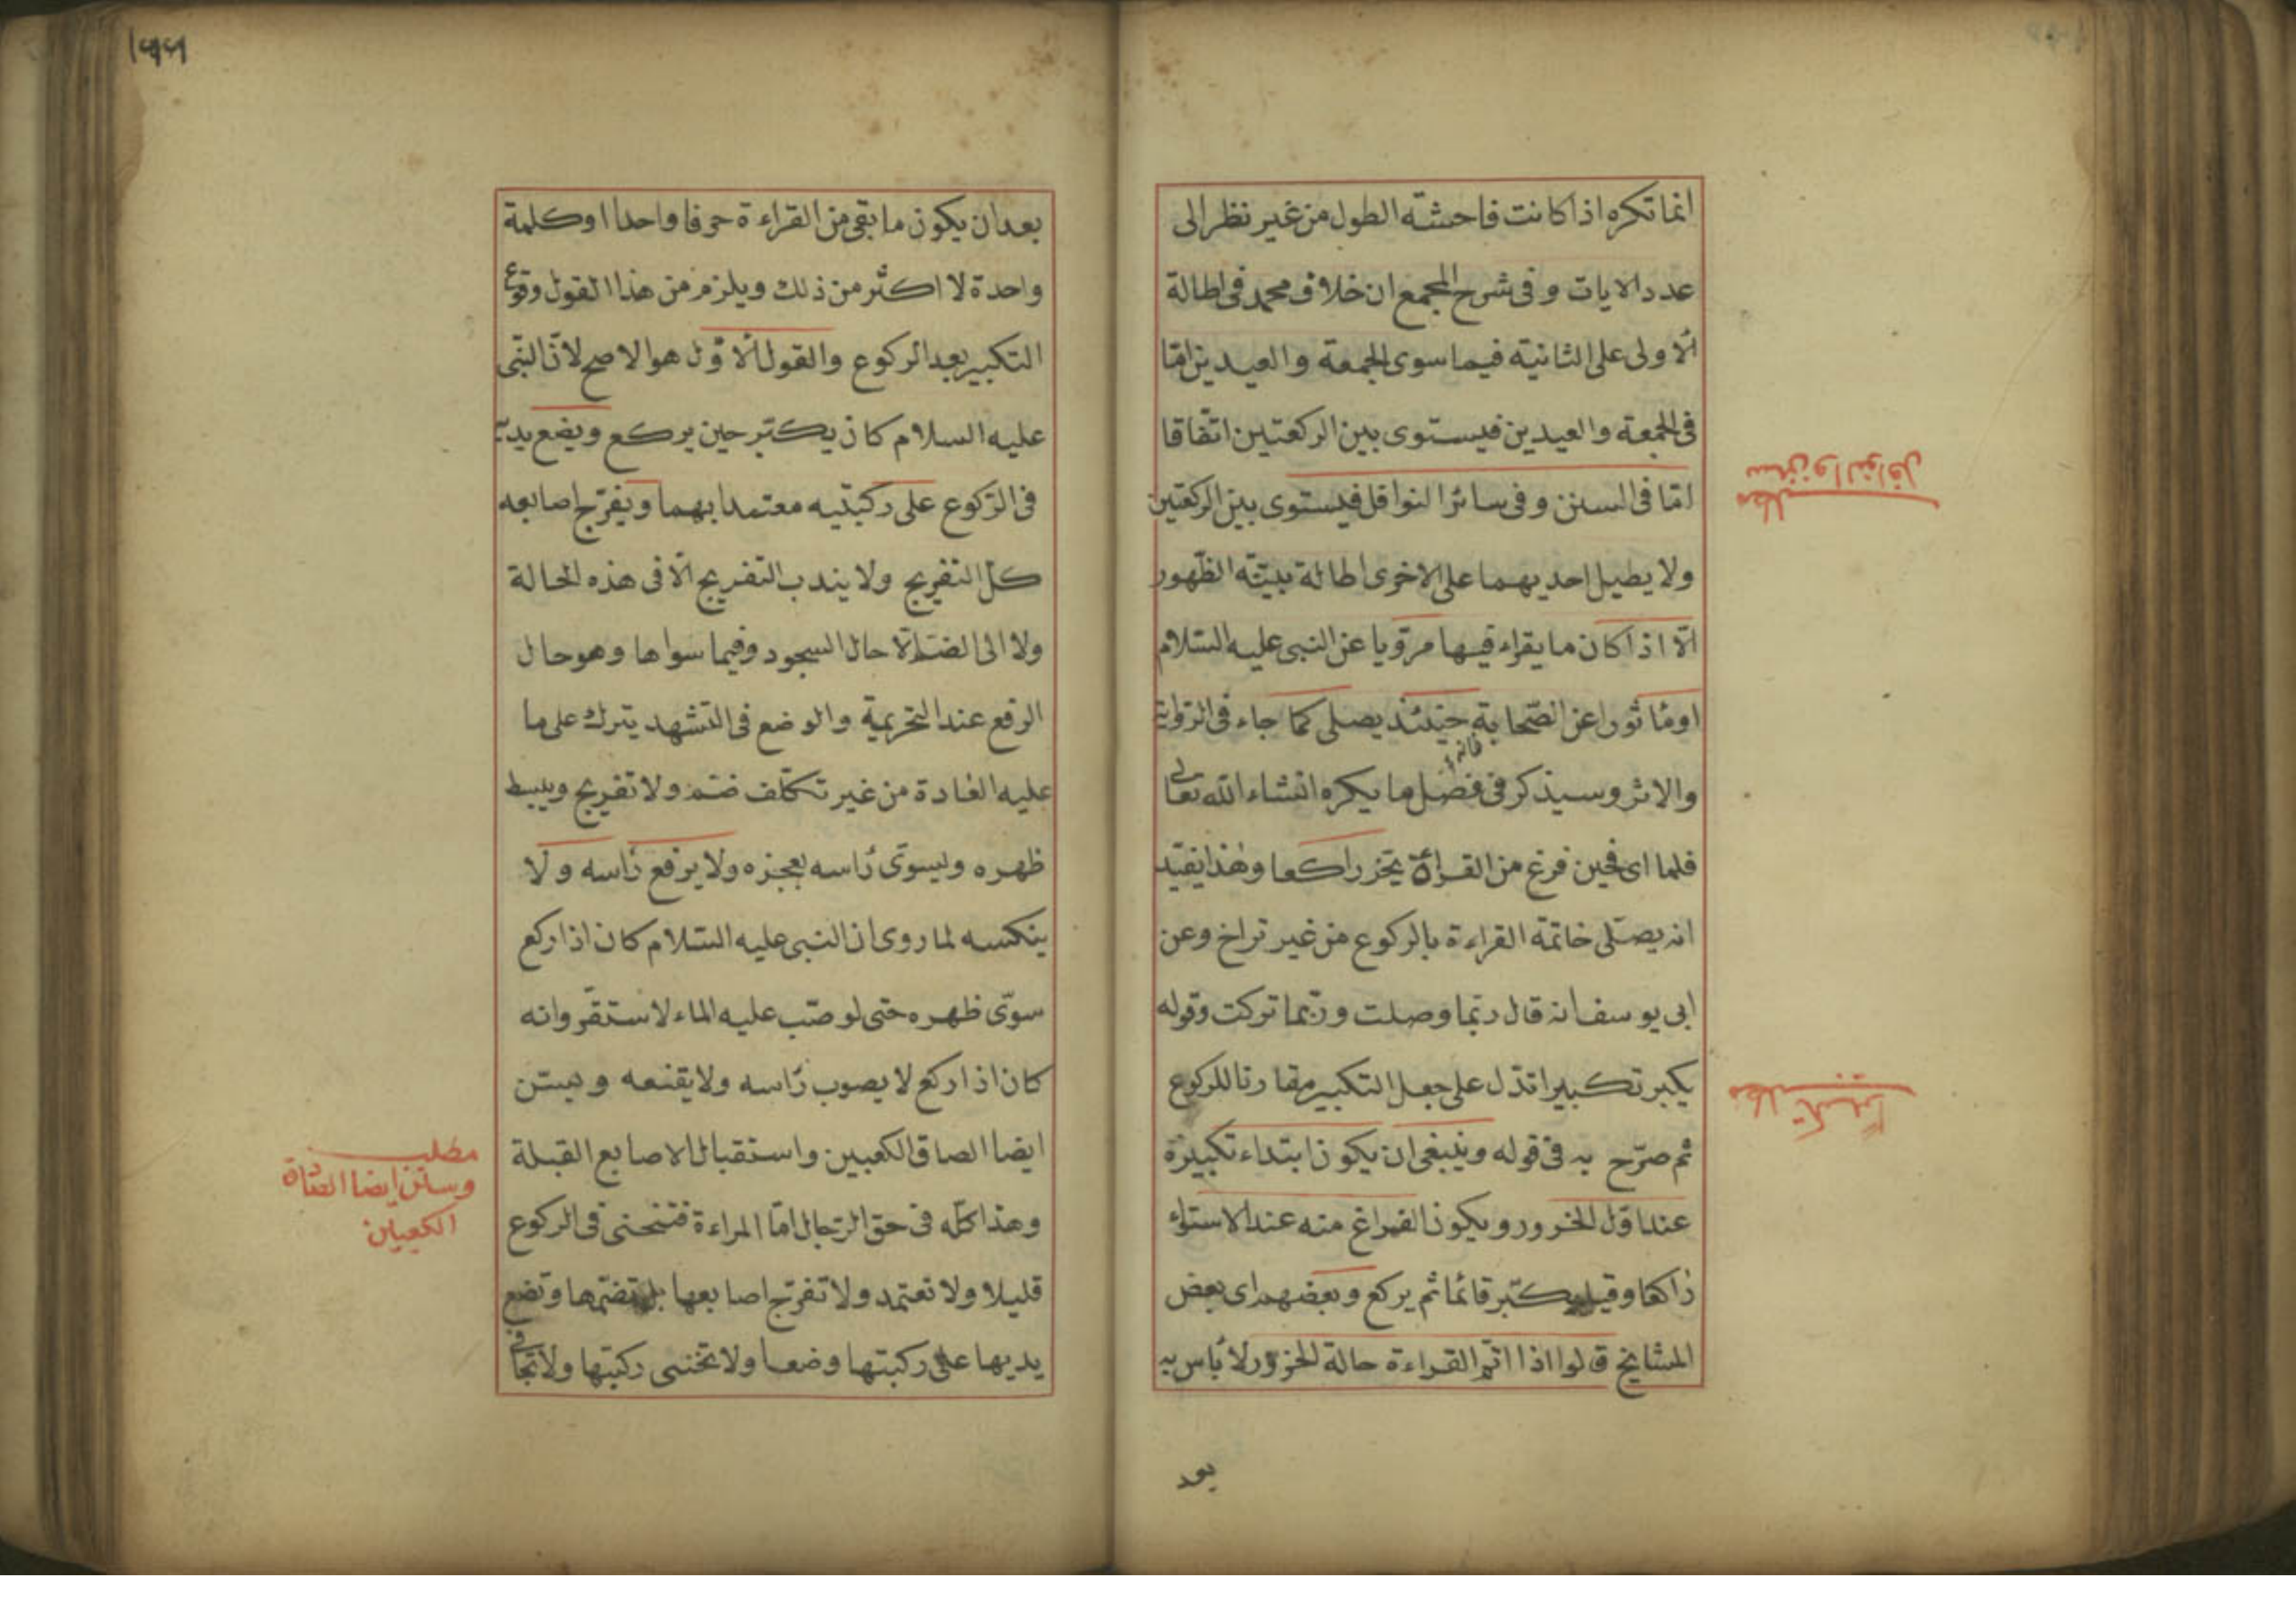 انما تكره اذا كانت فاحشة الطول من غير نظر الى
عدد الايات وفى شرح المجمع ان خلاف محمد فى اطالة
الاولى على الثانية فيما سوى الجمعة والعيدين اما
فى الجمعة والعيدين فيستوى بين الركعتين اتفاقا
امّا فى السنن وفى سائر النوافل فيستوى بين الركعتين
ولا يطيل احديهما على الاخرى اطالة بيّنة الظهور
الّا اذا كان ما يقراء فيها مرويا عن النبى عليه السّلام
او مأثورا عن الصّحابة فانه ح حينئذ يصلى كما جاء فى الرّواية
والاثر وسيذكر فى فصل ما يكره انشاء الله تعالى
فلما اى فحين فرغ من القراءة يخرّ راكعا وهذا يفيد
انه يصلى خاتمة القراءة بالركوع من غير تراخ وعن
ابى يوسف انه قال ربّما وصلت وربّما تركت وقوله
يكبر تكبيرا تدّل على جعل التكبير مقارنا للركوع
ثم صرّح به فى قوله وينبغى ان يكون ابتداء تكبيرة
عند اوّل الخرور ويكون الفراغ منه عند الاستواء
راكعا وقيل يكبّر قائما ثم يركع وبعضهم اى بعض
المشايخ قالوا اذا اتم القراءة حالة الخرور لا بأس به
بعد
مطلب سنن والنوافل
مطلب تكبيرا
١٩٩
بعد ان يكون ما بقى من القراءة حرفا واحدا او كلمة
واحدة لا اكثر من ذلك ويلزم من هذا القول وقوع
التكبير بعد الركوع والقول الاوّل هو الاصح لانّ النبّى
عليه السلام كان يكبّر حين يركع ويضع يديه
فى الرّكوع على ركبتيه معتمدا بهما ويفرّج اصابعه
كلّ التفريج ولا يندب التفريج الّا فى هذه الحالة
ولا الى الضمّ الّا حال السجود وفيما سواها وهو حال
الرفع عند التحريمة والوضع فى التشهد يترك على ما
عليه العادة من غير تكلّف ضمّ ولا تفريج ويبسط
ظهره ويسوّى رأسه بعجزه ولا يرفع رأسه ولا
ينكسه لما روى ان النبى عليه السّلام كان اذا ركع
سوّى ظهره حتى لو صبّ عليه الماء لاستقرّ وانه
كان اذا ركع لا يصوب رأسه ولا يقنعه ويسنّ
ايضا الصاق الكعبين واستقبال الاصابع القبلة
وهذا كلّه فى حق الرّجال امّا المراءة فتنحنى فى الركوع
قليلا ولا تعتمد ولا تفرّج اصابعها بل تضمّها وتضع
يديها على ركبتها وضعا ولا تحنى ركبتها ولا تجافى
مطلب
وسنن ايضا الصاق
الكعبين